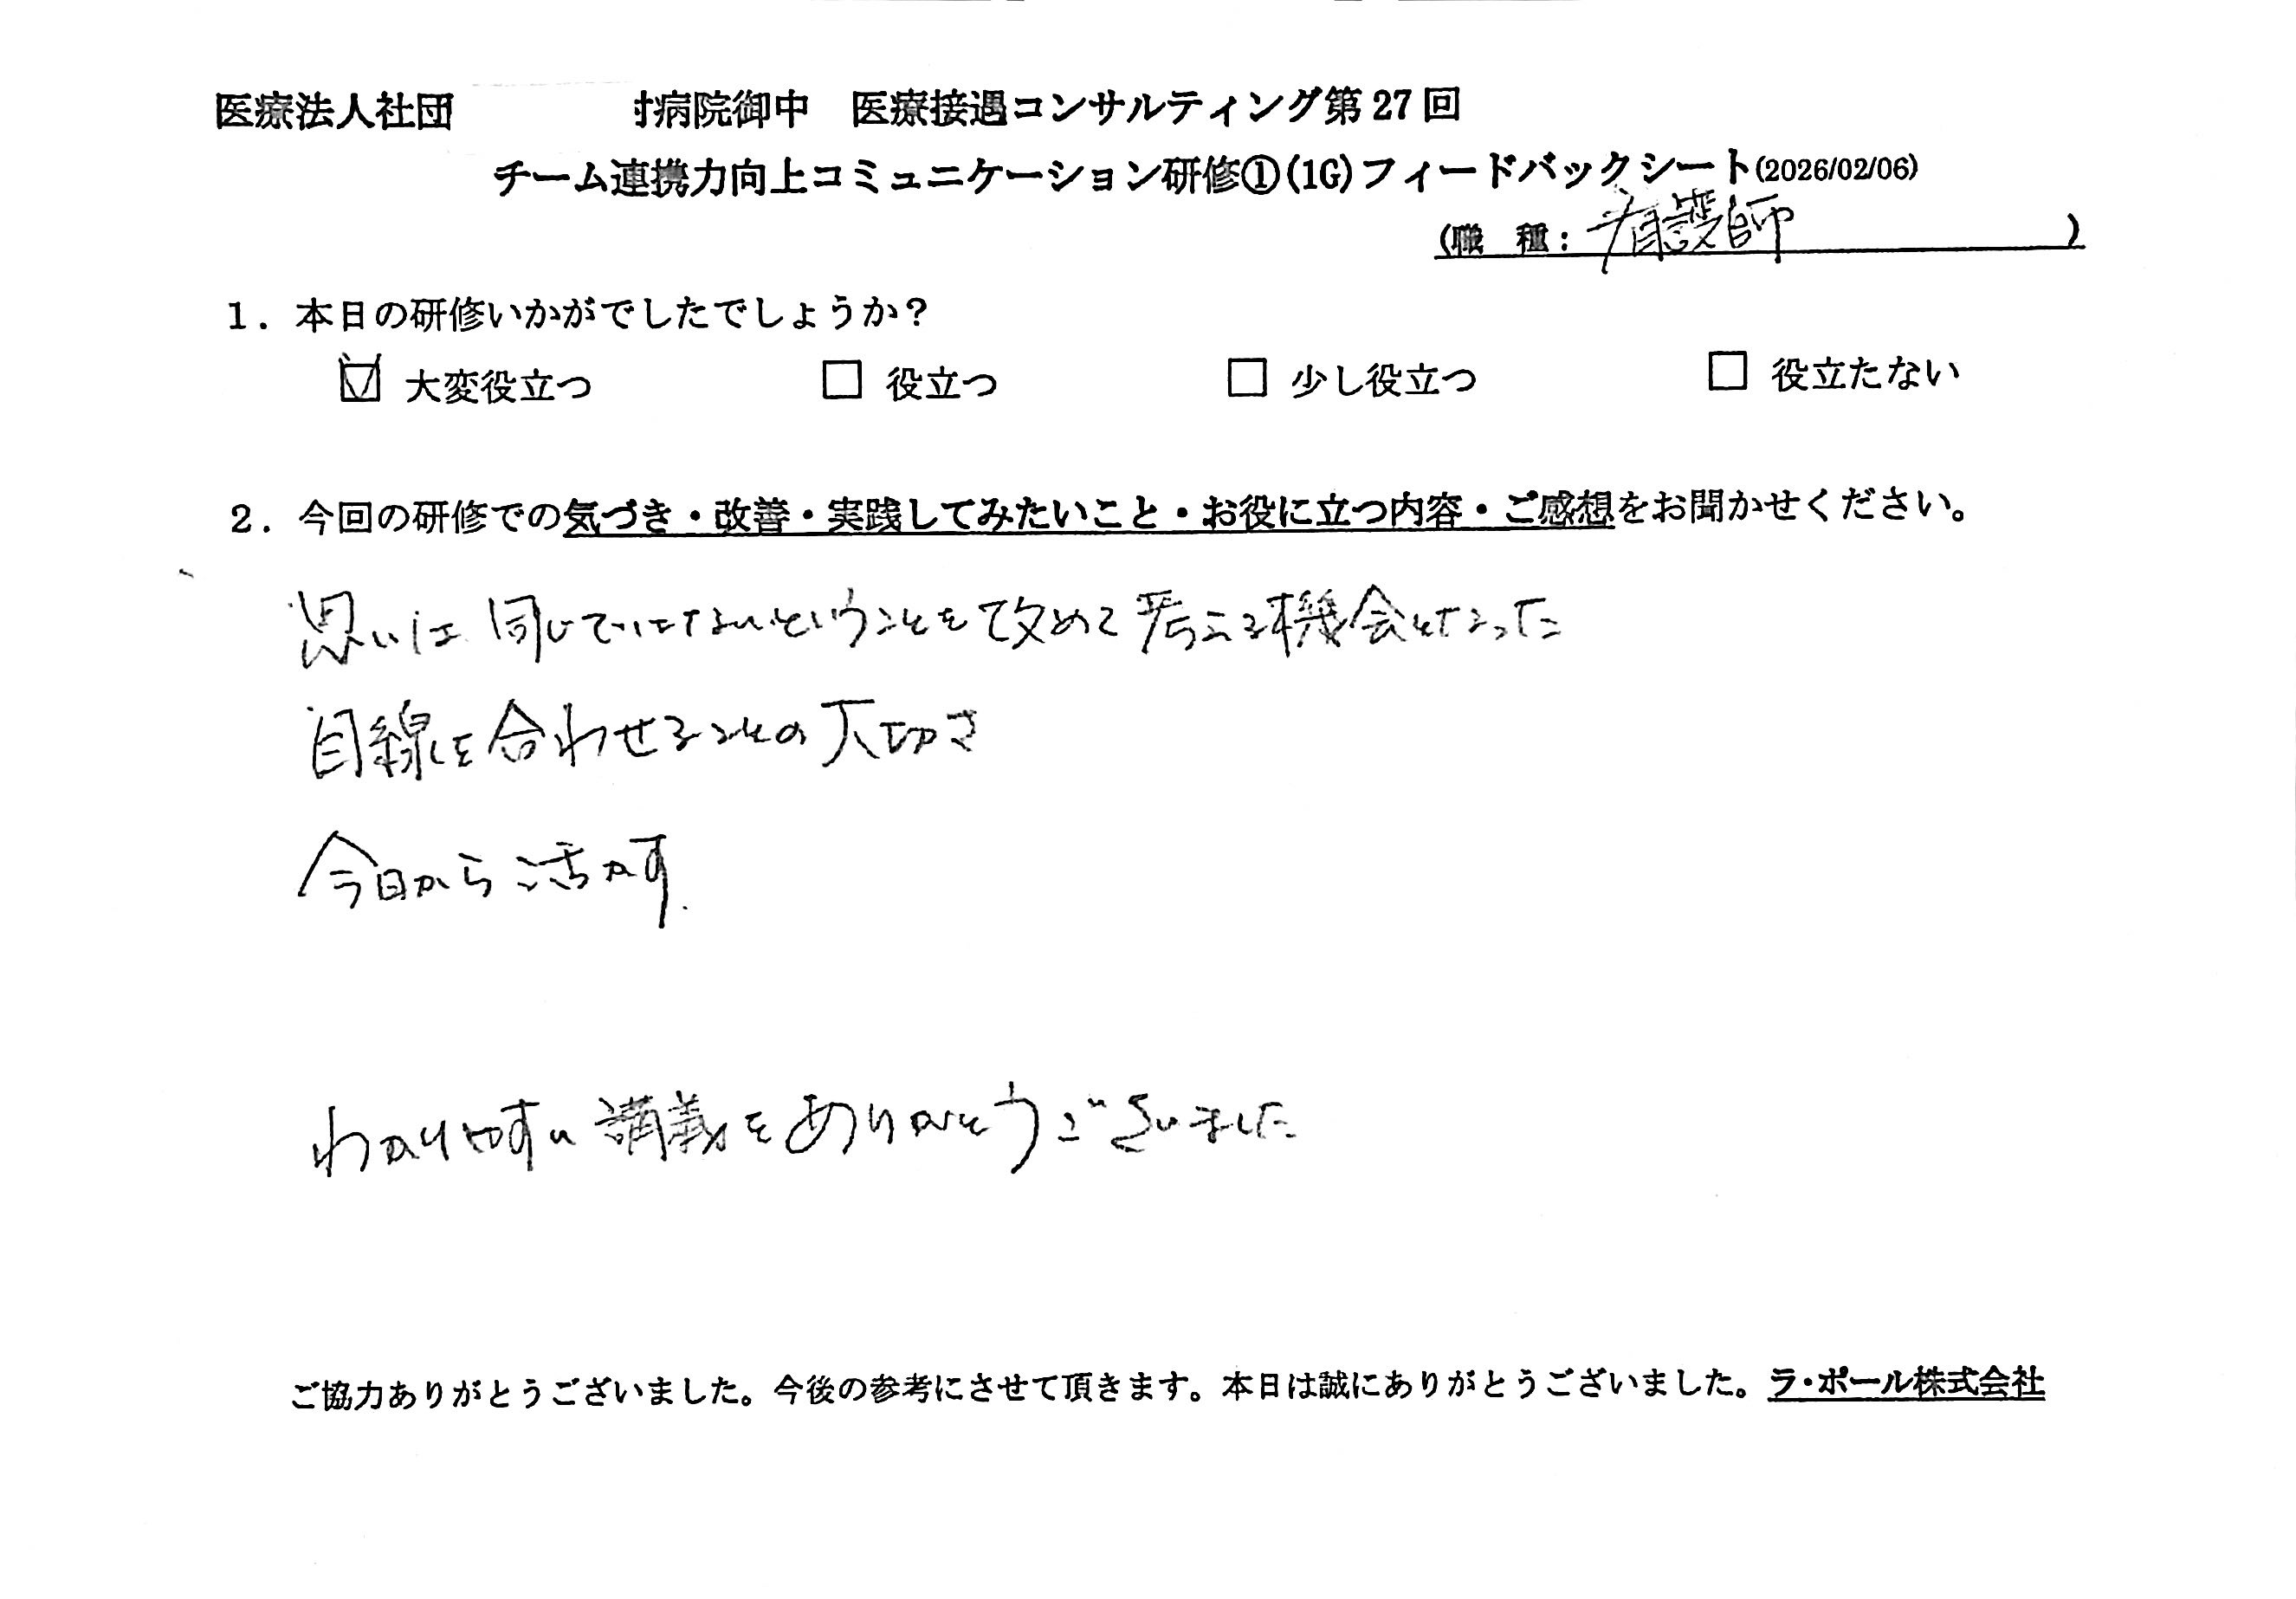 医療法人社団 病院御中 医療接遇コンサルティング第27回
チーム連携力向上コミュニケーション研修①(1G)フィードバックシート(2026/02/06)
(職 種: 看護師 )
1. 本日の研修いかがでしたでしょうか?
☑ 大変役立つ □ 役立つ □ 少し役立つ □ 役立たない
2. 今回の研修での気づき・改善・実践してみたいこと・お役に立つ内容・ご感想をお聞かせください。
思いは同じではないということを改めて考える機会となった
目線を合わせることの大切さ
今日から活かす.
わかりやすい講義をありがとうございました
ご協力ありがとうございました。今後の参考にさせて頂きます。本日は誠にありがとうございました。ラ・ポール株式会社